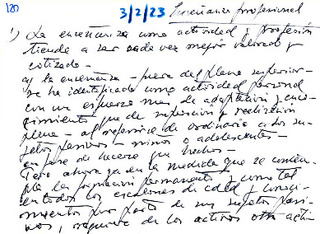 120 3/2/23 Enseñanza profesional
1) La enseñanza como actividad y profesión
tiende a ser cada vez mejor valorada y
cotizada.-
a) la enseñanza - fuera del plano superior -
se ha identificado como actividad personal
con un esfuerzo mas de adaptación y
que de superación y realización
plena - al referirse de ordinario a los su-
jetos pasivos - niños o adolescentes -
en fase de hacerse que hechos.-
Pero ahora ya en la medida que se contem-
pla la formación permanente y como tal
en todos los escalones de edad y conoci-
mientos por parte de un sujeto pasi-
vo, requiere de los activos otra acti-